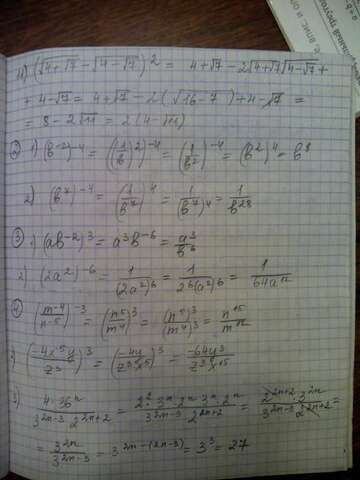 4) (√4+√7 - √4-√7)² = 4+√7 - 2√4+√7√4-√7 +
+ 4-√7 = 4+√7 - 2(√16-7) + 4-√7 =
= 8 - 2√11 = 2(4-√11)
② 1) (b⁻²)⁻⁴ = ((1/b)²)⁻⁴ = (1/b²)⁻⁴ = (b²)⁴ = b⁸
2) (b⁷)⁻⁴ = (1/b⁷)⁴ = 1/(b⁷)⁴ = 1/b²⁸
③ 1) (ab⁻²)³ = a³b⁻⁶ = a³/b⁶
2) (2a²)⁻⁶ = 1/(2a²)⁶ = 1/2⁶(a²)⁶ = 1/64a¹²
④ (m⁻⁴/n⁻⁵)⁻³ = (n⁵/m⁴)³ = (n⁵)³/(m⁴)³ = n¹⁵/m¹²
2) (-4x⁻⁵y/z³)³ = (-4y/z³x⁵)³ = -64y³/z⁹x¹⁵
3) 4·36ⁿ/3²ⁿ⁻³·2²ⁿ⁺² = 2²·3ⁿ·2ⁿ·3ⁿ·2ⁿ/3²ⁿ⁻³·2²ⁿ⁺² = 2²ⁿ⁺²·3²ⁿ/3²ⁿ⁻³·2²ⁿ⁺² =
= 3²ⁿ/3²ⁿ⁻³ = 3²ⁿ⁻⁽²ⁿ⁻³⁾ = 3³ = 27